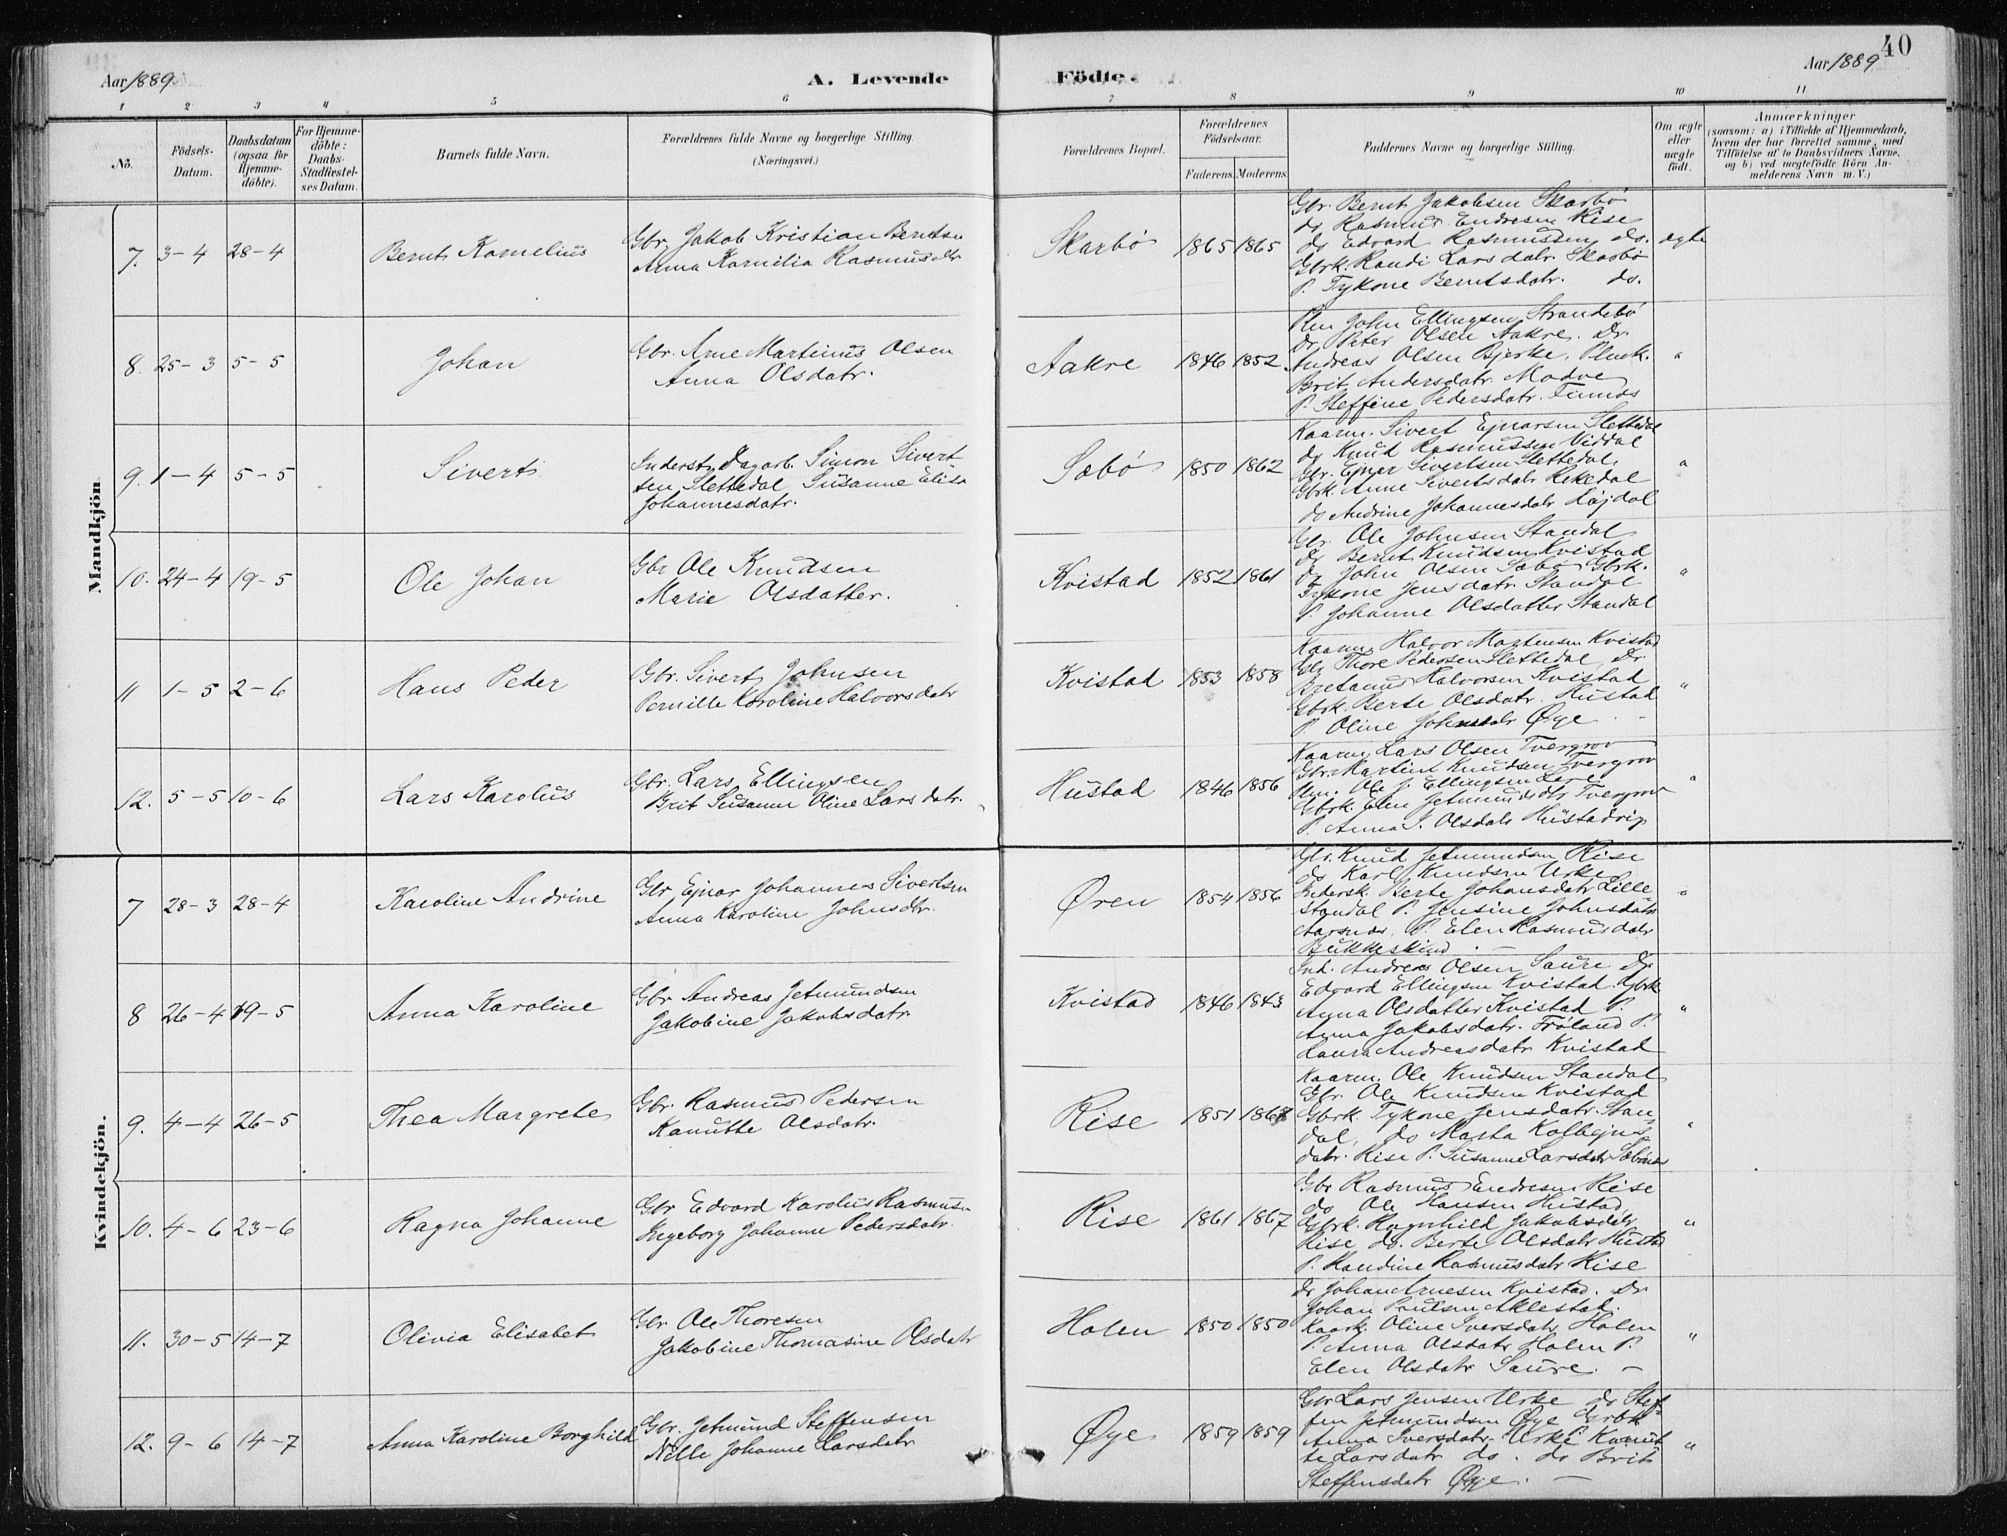 40
Aar 1889
A. Levende
Födte.
Aar 1889
1 2 3 4 5 6 7 8 9 10 11
No.
Födsels-Datum.
Daabsdatum (ogsaa for Hjemme-döbte).
For Hjemme-döbte: Daabs-Stadfæstel-ses Datum.
Barnets fulde Navn.
Forældrenes fulde Navne og borgerlige Stilling.
(Næringsvei.)
Forældrenes Bopæl.
Forældrenes Födselsaar.
Faderens. Moderens.
Faddernes Navne og borgerlige Stilling.
Om ægte eller uægte födt.
Anmærkninger
(saasom: a) i Tilfælde af Hjemmedaab, hvem der har forrettet samme, med Tilföielse af to Daabsvidners Navne, og b) ved uægtefödte Börn Anmelderens Navn m. V.)
Mandkjön
7. 3-4 28-4 Bernt Kornelius
Gbr. Jakob Kristian Berntsen
Anna Kornilia Rasmusdtr
Skarbø 1865 1865
Gbr. Bernt Jakobsen Skarbø
do Rasmus Endresen Rise
do Edvard Rasmussen do.
Gbrk. Randi Larsdatr. Skarbø
P. Tykone Berntsdatr. do.
ægte
8. 25-3 5-5 Johan
Gbr. Arne Martinus Olsen
Anna Olsdatr.
Aakre 1846 1852
John Ellingsen Strandebø
Dr. Peter Olsen Aakre. Dr.
Andreas Olsen Bjerke.
Brit Andersdatr. Modve
P. Steffine Pedersdatr. Finnes
"
9. 1-4 5-5 Sivert
Inderst, Dagarb. Simon Sivert
sen Slettedal Susanne Elisa
Johannesdatr.
Sæbø 1850 1862
Kaarm. Sivert Ejnarsen Slettedal
do Knud Rasmussen Viddal
Gbr. Ejnar Sivertsen Slettedal,
Gbrk. Anne Sivertsdatr. Rekedal
do Andrine Johannesdatr Højdal
"
10. 24-4 19-5 Ole Johan
Gbr Ole Knudsen
Marie Olsdatter.
Kvistad 1852 1861
Gbr. Ole Johnsen Standal
do Bernt Knudsen Kvistad
do John Olsen Sæbø Gbrk.
Tykone Jensdatr. Standal
P. Johanne Olsdatter Standal
"
11 1-5 2-6 Hans Peder
Gbr. Sivert Johnsen
Pernille Karoline Halvorsdatr
Kvistad 1853 1858
Kaarm. Halvor Mortensen Kvistad
Gbr Thore Pedersen Slettedal, Dr.
Bretanus Halvorsen Kvistad
Gbrk. Berte Olsdatr. Hustad
P. Oline Johnsdatr Øye. -
"
12. 5-5 10-6 Lars Karolus
Gbr. Lars Ellingsen
Brit Susanne Oline Larsdatr.
Hustad 1846 1856
Kaarm. Lars Olsen Tvergrov
Gbr. Martinus Knudsen Tvergrov
Ole J. Ellingsen
Gbrk. Elen Jetmundsdtr Tvergrov
P. Anna J. Olsdatr Hustad
"
Kvindekjön.
7 28-3 28-4 Karoline Andrine
Gbr Ejnar Johannes Sivertsen
Anna Karoline Johnsdtr.
Øren 1854 1856
Gbr. Knud Jetmundsen Rise
do Karl Knudsen Urke
Indersk. Berte Johansdatr Lille
standal P. Jensine Johnsdatr
Aarsnes. P. Elen Rasmusdatr
Bukkeskind
"
8 26-4 19-5 Anna Karoline
Gbr Andreas Jetmundsen
Jakobine Jakobsdatr
Kvistad 1846 1843
Ind. Andreas Olsen Saure Dr.
Edvard Ellingsen Kvistad Gbrk
Anna Olsdatter Kvistad P.
Anna Jakobsdatr. Frøland P.
Laura Andreasdatr Kvistad
"
9. 4-4 26-5 Thea Margrete
Gbr. Rasmus Pedersen
Kanutte Olsdatr.
Rise 1851 1868
Kaarm. Ole Knudsen Standal
Gbr. Ole Knudsen Kvistad
Gbrk Tykone Jensdatr. Stan
dal, do Marta Kolbejns
datr. Rise P. Susanne Larsdatr Sæbønes
"
10. 4-6 23-6 Ragna Johanne
Gbr Edvard Karolus Rasmusen
Ingeborg Johanne Pedersdatr.
Rise 1861 1867
Gbr Rasmus Endresen Rise
do Ole Hansen Hustad
Gbrk. Ragnhild Jakobsdatr
Rise do. Berte Olsdatr Hustad
P. Randine Rasmusdatr Rise
"
11. 30-5 14-7 Olivia Elisabet
Gbr Ole Thoresen
Jakobine Thomasine Olsdatr
Holen 1850 1850
Dr Johan Arnesen Kvistad. Dr
Johan Poulsen Aklestad.
Kaark. Oline Iversdatr Holen
P. Anna Olsdatr Holen P.
Elen Olsdatr Saure. -
"
12. 9-6 14-7 Anna Karoline Borghild
Gbr. Jetmund Steffensen
Nille Johanne Larsdatr
Øye 1859 1859
Gbr Lars Jensen Urke do Stef
fen Jetmundsen Øye Gbrk
Anna Iversdatr Urke P. Kanut
te Larsdatr do. do Brit
Steffensdatr Øye. -
"